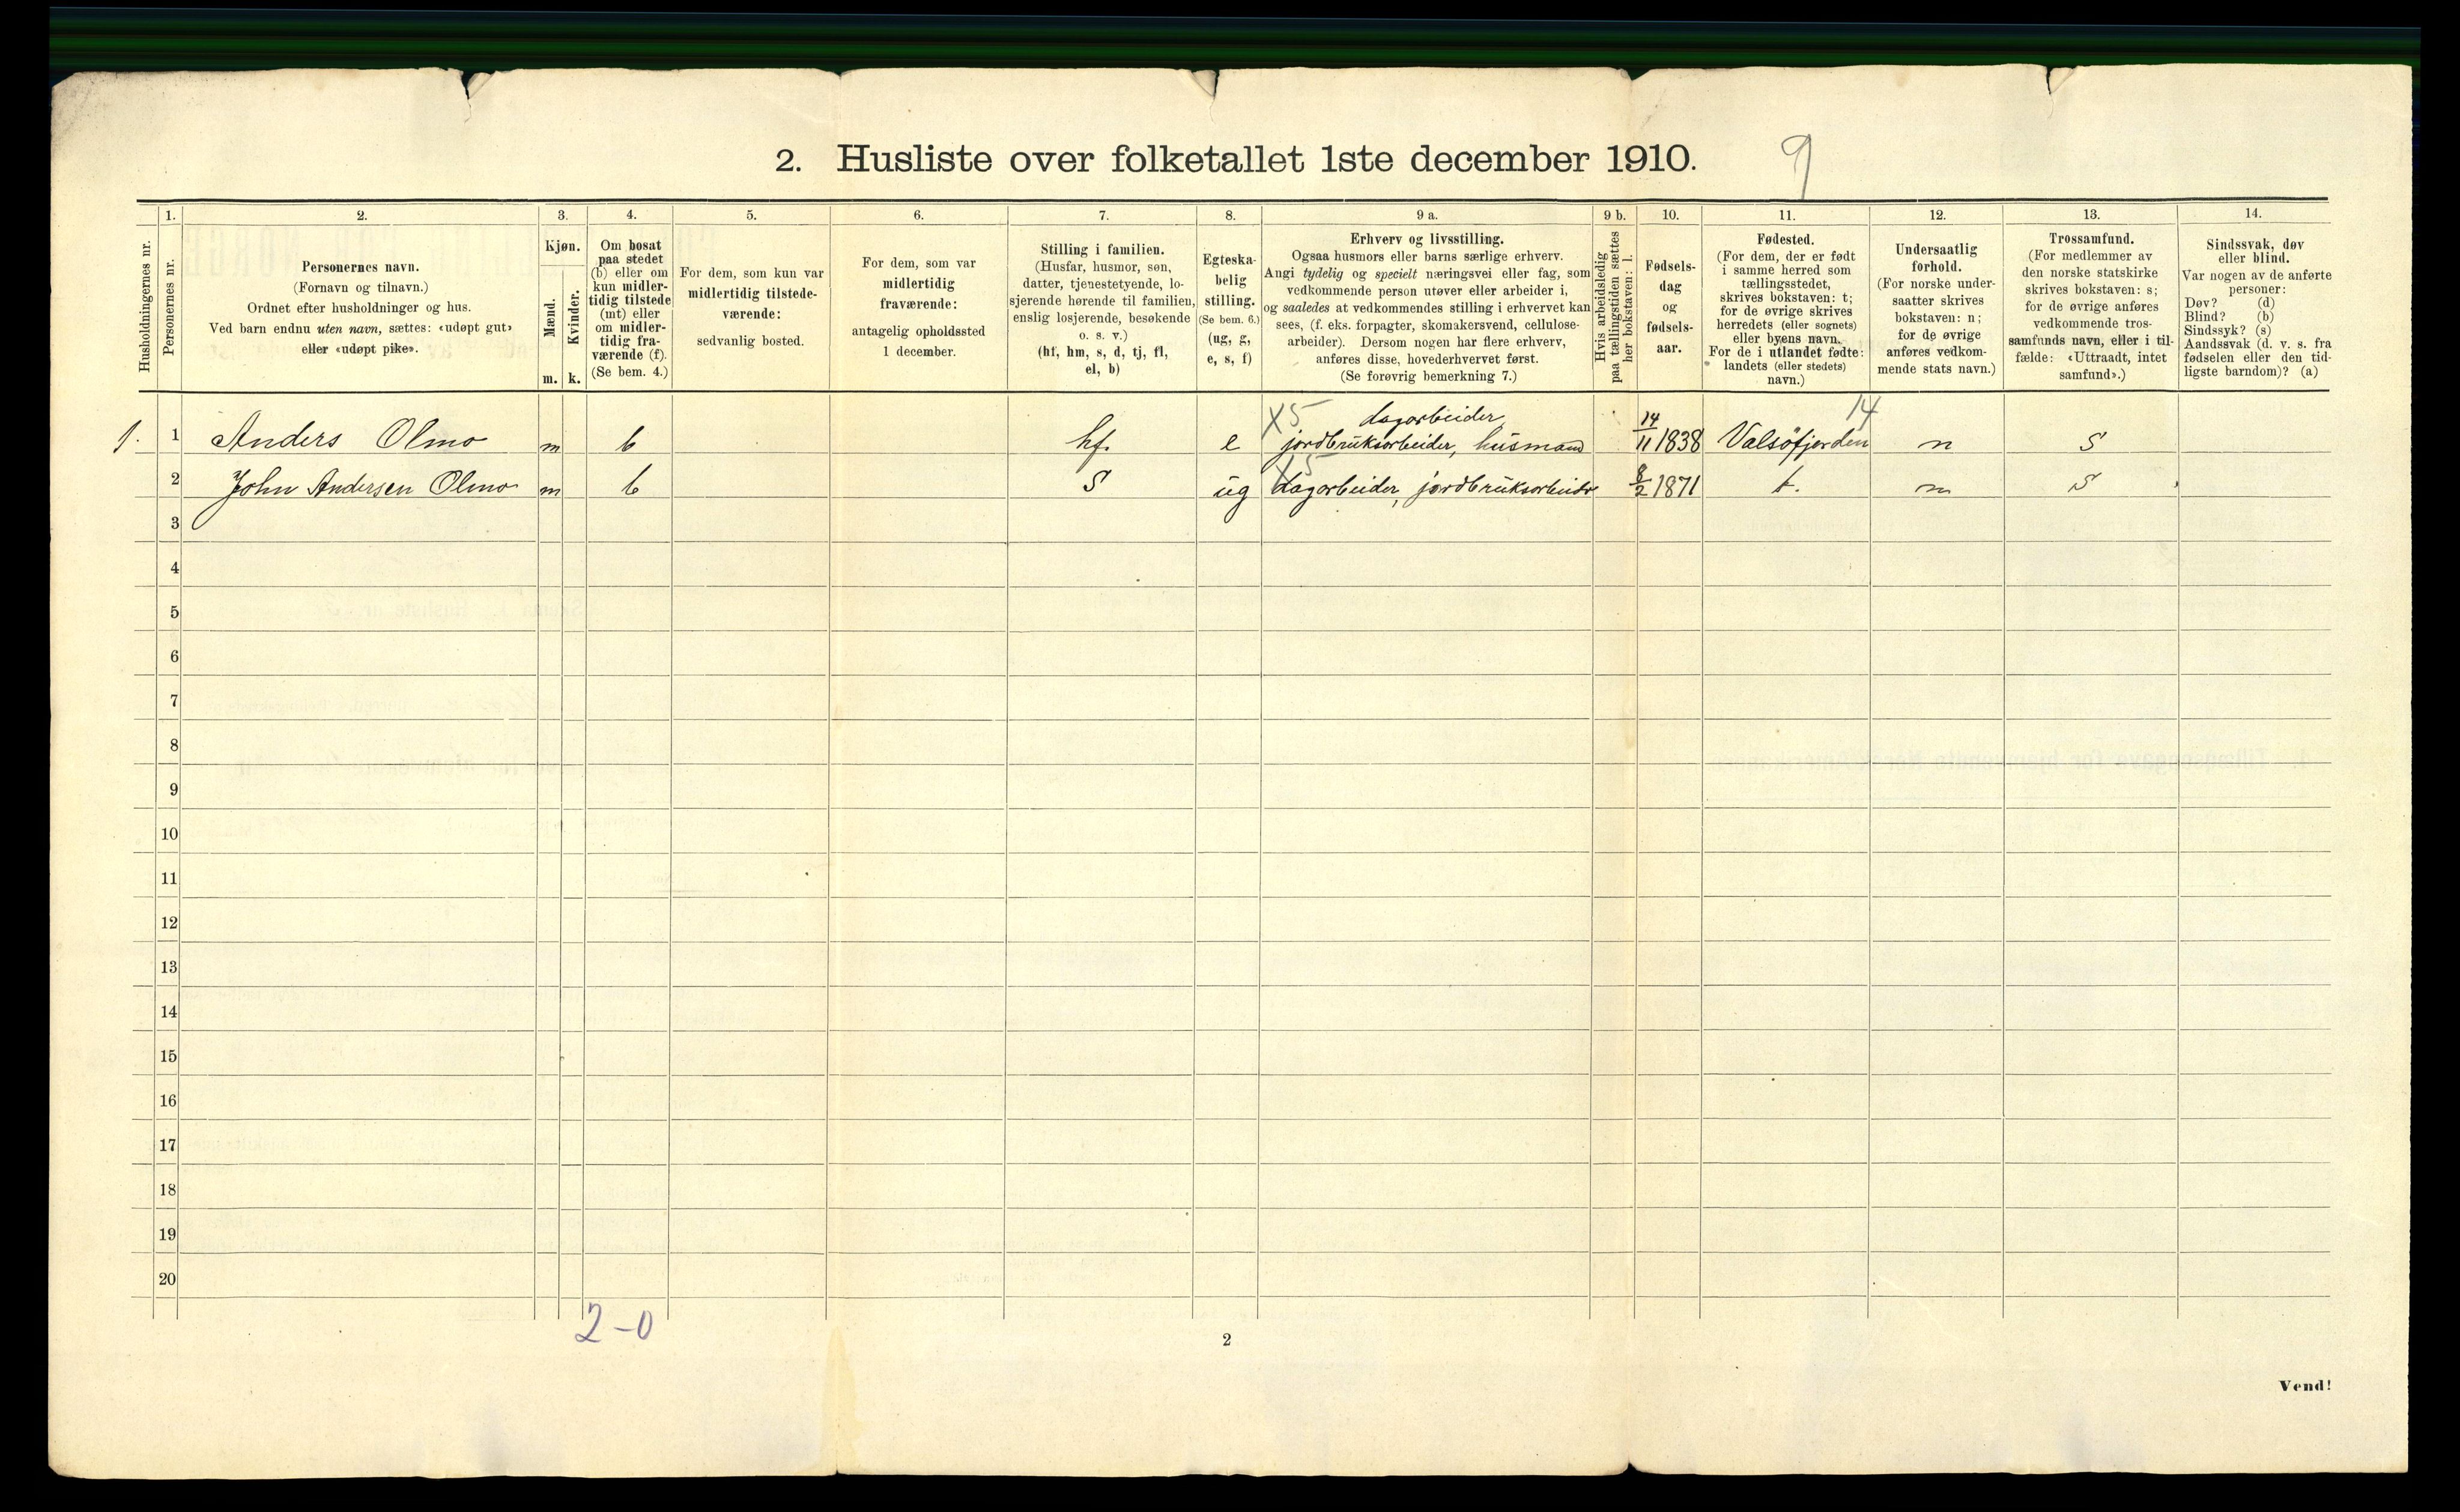 2. Husliste over folketallet 1ste december 1910. 9
Husholdningernes nr.
1.
Personernes nr.
2.
Personernes navn.
(Fornavn og tilnavn.)
Ordnet efter husholdninger og hus.
Ved barn endnu uten navn, sættes: «udøpt gut»
eller «udøpt pike».
3.
Kjøn.
Mænd.
Kvinder.
m. k.
4.
Om bosat
paa stedet
(b) eller om
kun midler-
tidig tilstede
(mt) eller
om midler-
tidig fra-
værende (f).
(Se bem. 4.)
5.
For dem, som kun var
midlertidig tilstede-
værende:
sedvanlig bosted.
6.
For dem, som var
midlertidig
fraværende:
antagelig opholdssted
1 december.
7.
Stilling i familien.
(Husfar, husmor, søn,
datter, tjenestetyende, lo-
sjerende hørende til familien,
enslig losjerende, besøkende
o. s. v.)
(hf, hm, s, d, tj, fl,
el, b)
8.
Egteska-
belig
stilling.
(Se bem. 6.)
(ug, g,
e, s, f)
9 a.
Erhverv og livsstilling.
Ogsaa husmors eller barns særlige erhverv.
Angi tydelig og specielt næringsvei eller fag, som
vedkommende person utøver eller arbeider i,
og saaledes at vedkommendes stilling i erhvervet kan
sees, (f. eks. forpagter, skomakersvend, cellulose-
arbeider). Dersom nogen har flere erhverv,
anføres disse, hovederhvervet først.
(Se forøvrig bemerkning 7.)
9 b.
Hvis arbeidsledig
paa tællingstiden sættes
her bokstaven: l.
10.
Fødsels-
dag
og
fødsels-
aar.
11.
Fødested.
(For dem, der er født
i samme herred som
tællingsstedet,
skrives bokstaven: t;
for de øvrige skrives
herredets (eller sognets)
eller byens navn.
For de i utlandet fødte:
landets (eller stedets)
navn.)
12.
Undersaatlig
forhold.
(For norske under-
saatter skrives
bokstaven: n;
for de øvrige
anføres vedkom-
mende stats navn.)
13.
Trossamfund.
(For medlemmer av
den norske statskirke
skrives bokstaven: s;
for de øvrige anføres
vedkommende tros-
samfunds navn, eller i til-
fælde: «Uttraadt, intet
samfund».)
14.
Sindssvak, døv
eller blind.
Var nogen av de anførte
personer:
Døv? (d)
Blind? (b)
Sindssyk? (s)
Aandssvak (d. v. s. fra
fødselen eller den tid-
ligste barndom)? (a)
X5 dagarbeider, 14
1. 1 Anders Olmo m b hf. e jordbruksarbeider, husmand 14/11 1838 Valsöfjorden n S
X5
2 John Andersen Olmo m b S ug dagarbeider, jordbruksarbeider 8/2 1871 t. n S
3
4
5
6
7
8
9
10
11
12
13
14
15
16
17
18
19
20
2-0
2
Vend!